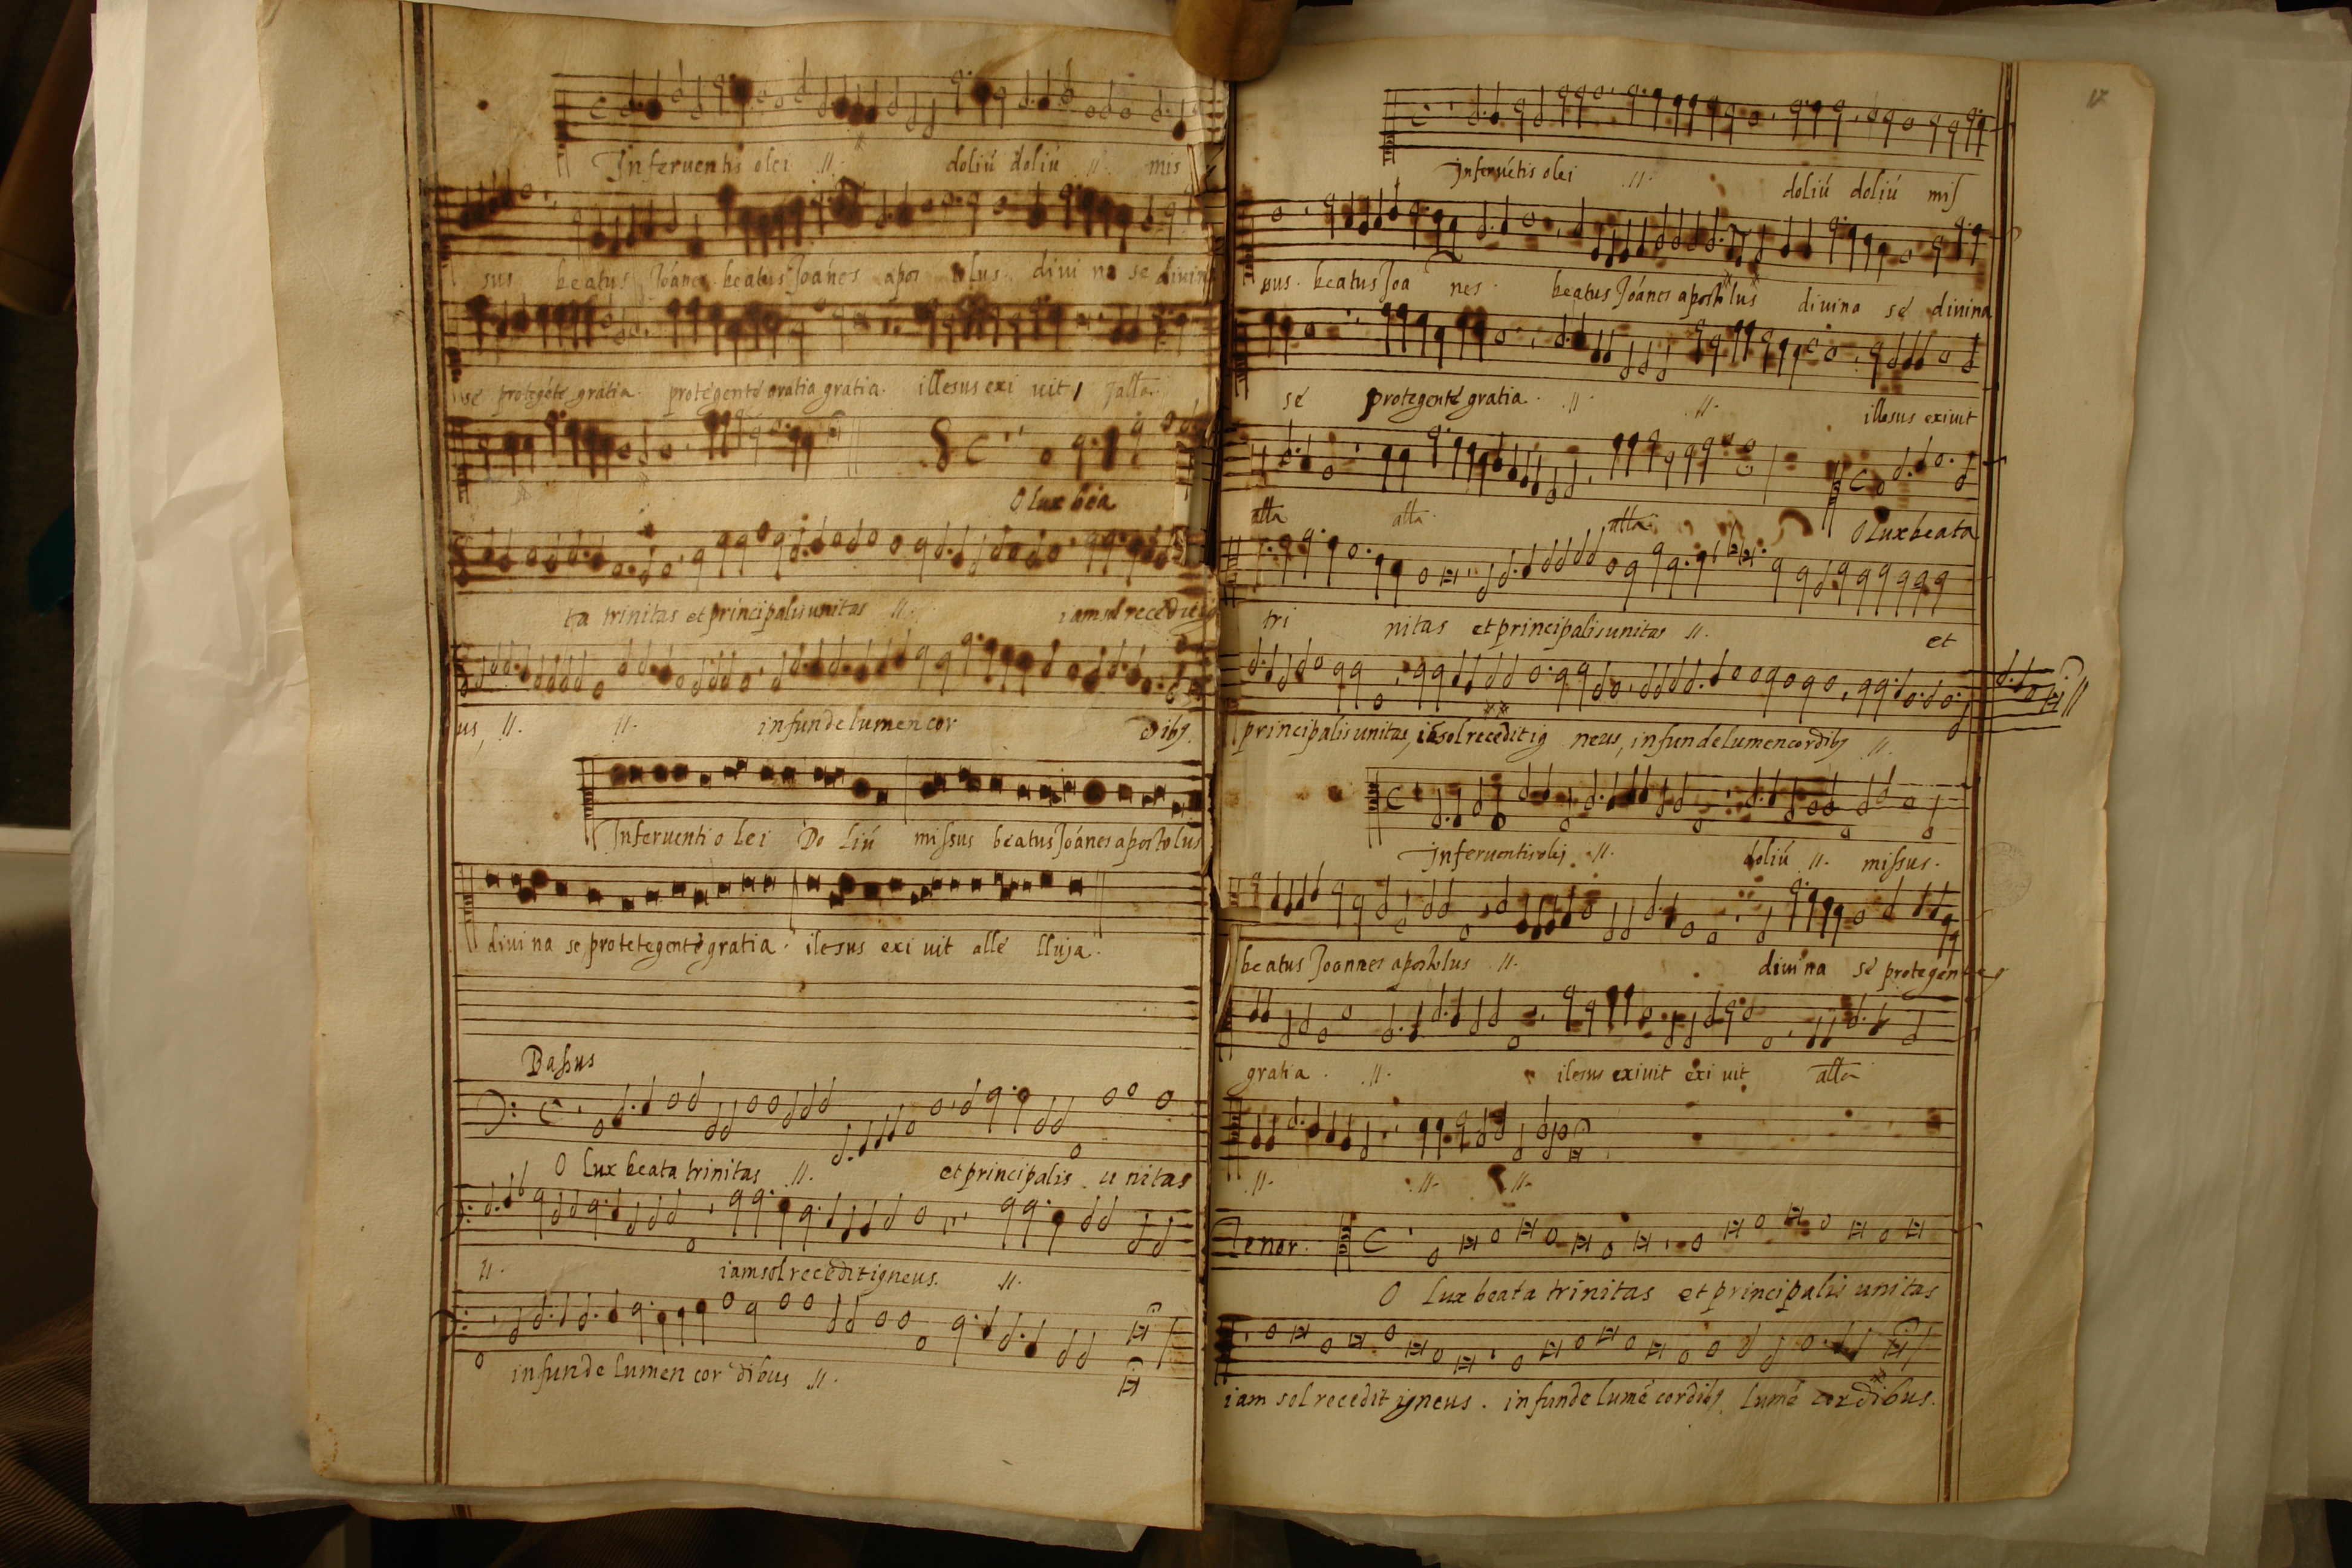 Inferventis olei .//. doliú doliú .//. mis
sus beatus Joánes beatus Joánes apos tolus. divi na se divina
sé protegété gratia. protegenté gratia gratia. illesus exi uit, alla.
O lux bea
ta trinitas et principalis unitas .//. iam sol recedit ig
us, .//. .//. infunde lumen cor dibꝫ.
Inferuenti o lei Do liú missus beatus Joánes apostolus
diui na se protetegenté gratia. ilesus exi uit alle lluja.
Bassus
O lux beata trinitas .//. et principalis u nitas
.//. iam sol recedit igneus. .//.
infunde lumen cor dibus .//.
17
Inferuétis olei .//. doliú doliú mis
sus. beatus Joa nes. beatus Joánes apostolus diuina sé diuina
sé protegenté gratia. .//. .//. illesus exiuit
alla alla. alla. O Lux beata
tri nitas et principalis unitas .//. et
principalis unitas, iã sol recedit ig neus, infunde lumen cordibꝫ .//.
Inferuentis olej .//. doliú .//. missus.
beatus Joannes apostolus .//. diuina sé protegente
gratia. .//. ilesus exiuit exi uit alla
.//. .//. .//.
Tenor.
O Lux beata trinitas et principalis unitas
iam sol recedit igneus. infunde lumé cordibꝫ lumé cordibus.